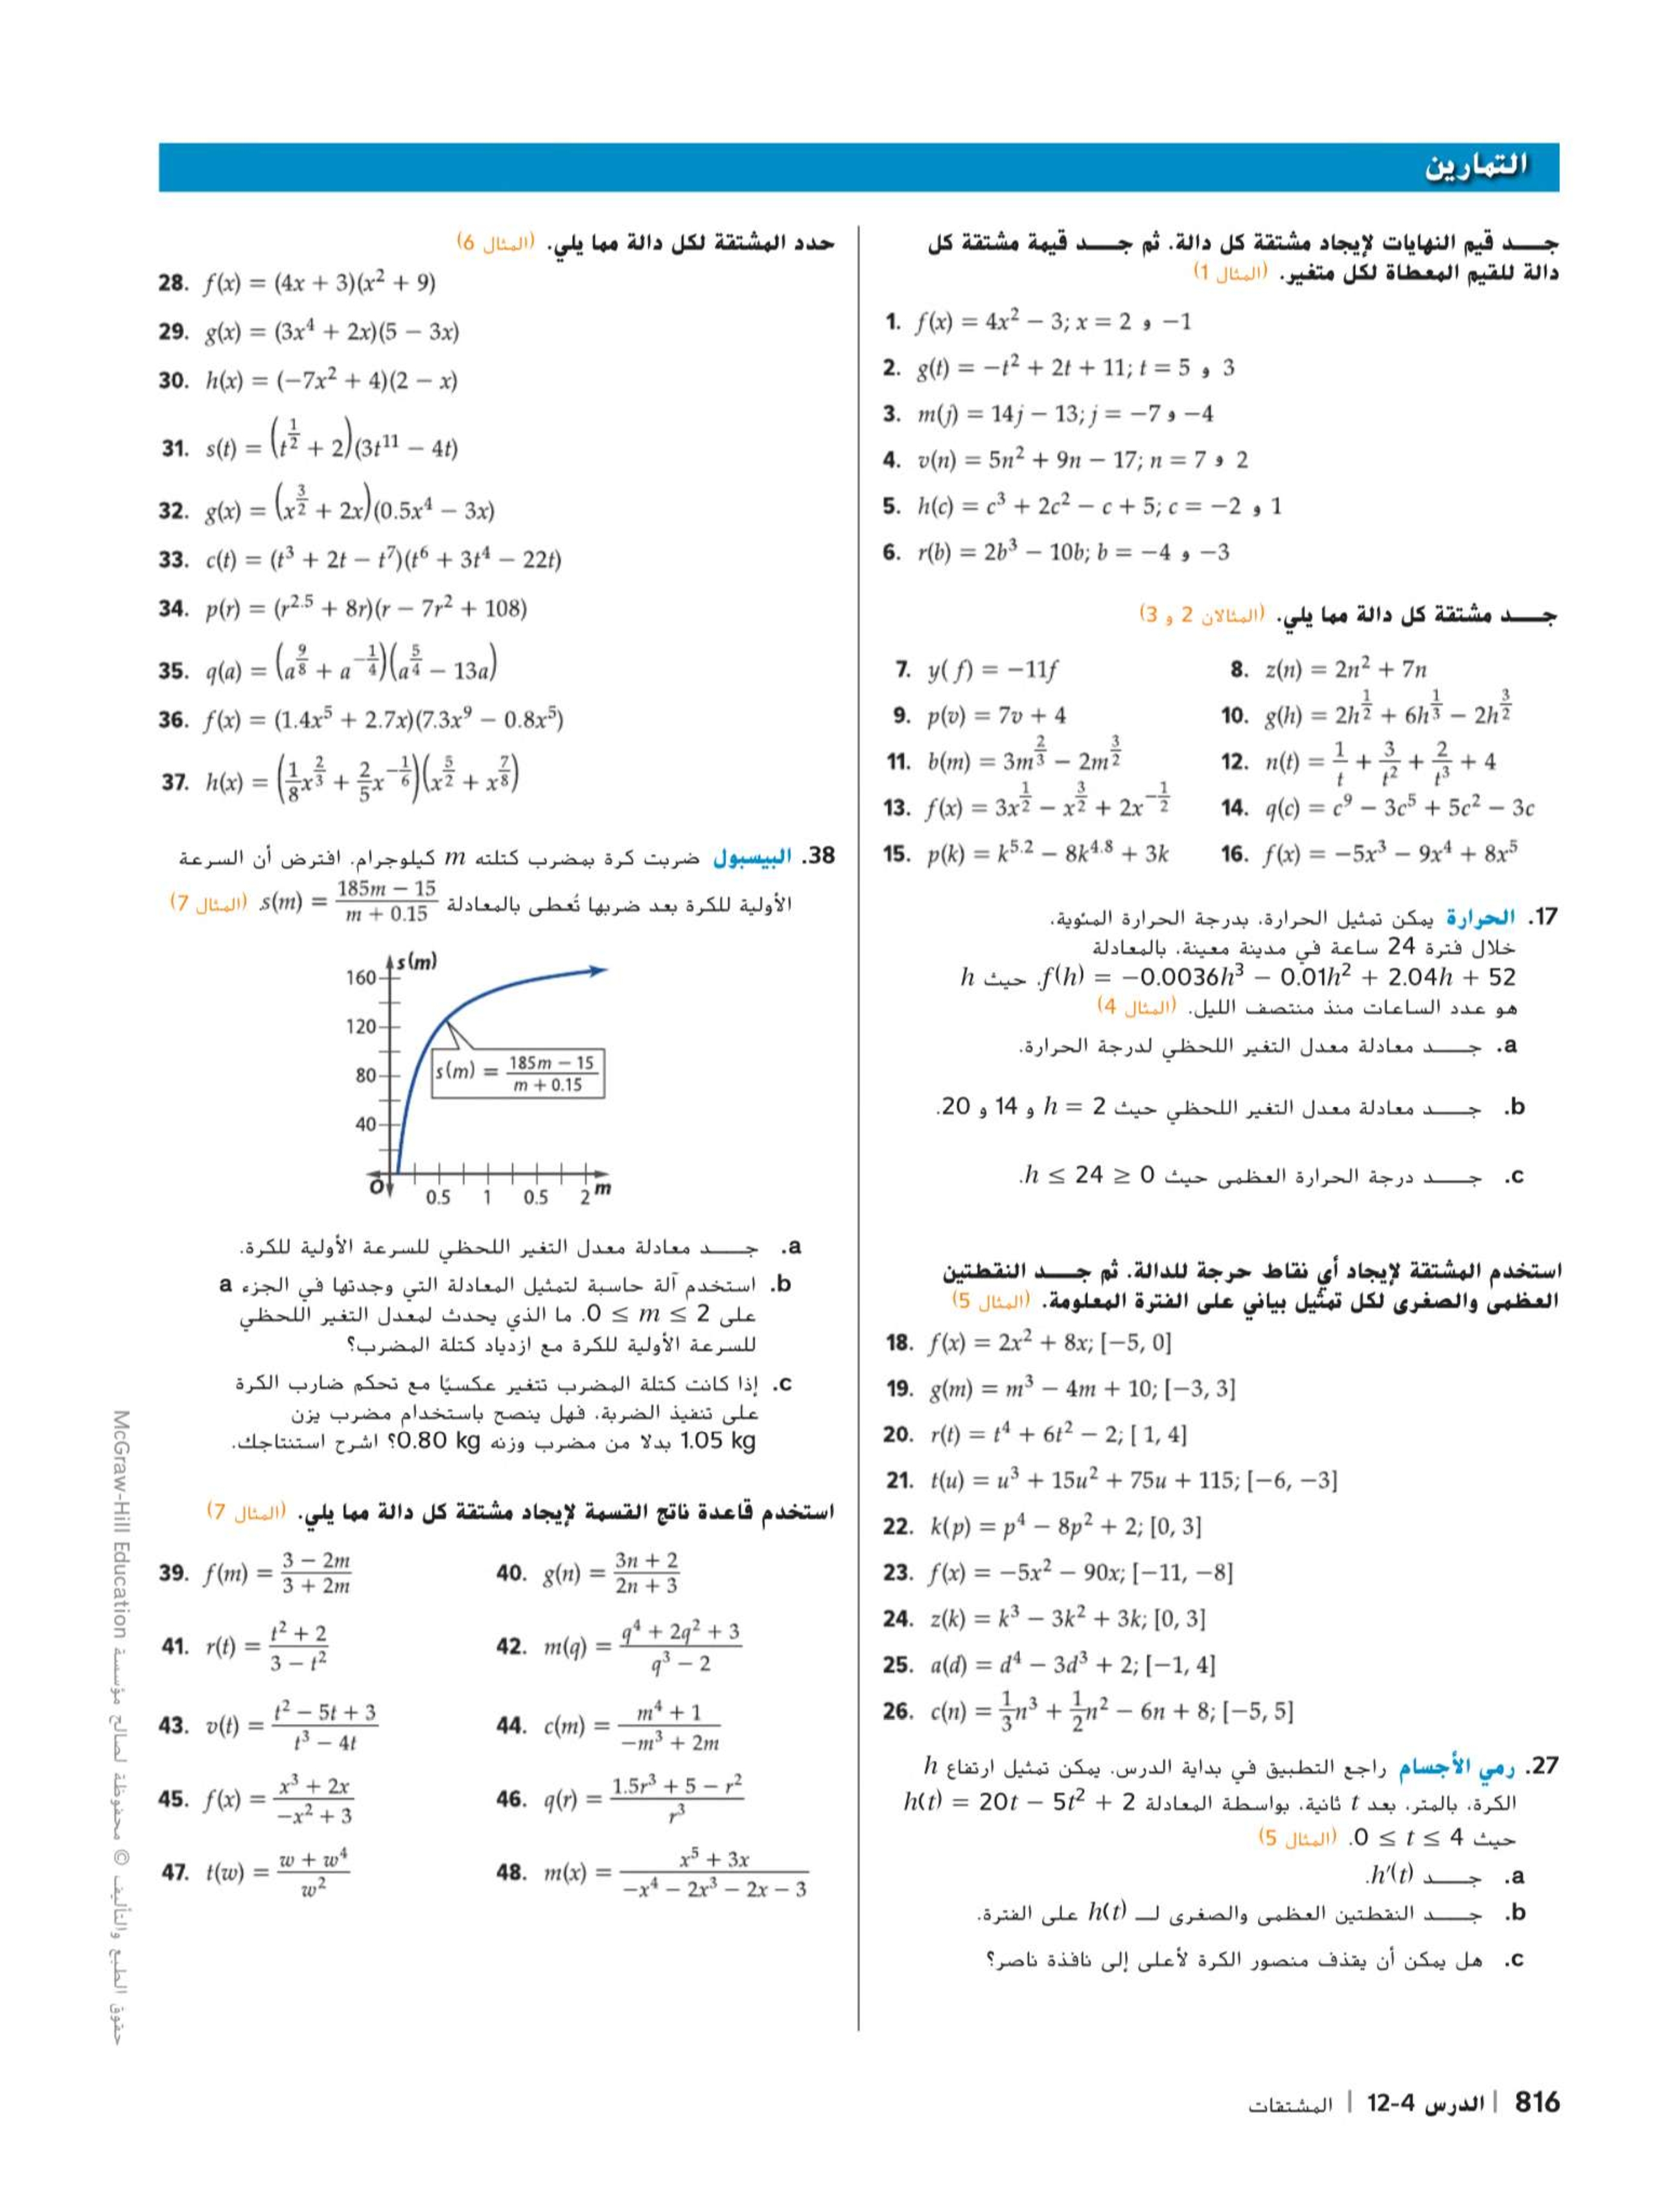 التمارين
جـــد قيم النهايات لإيجاد مشتقة كل دالة. ثم جـــد قيمة مشتقة كل
دالة للقيم المعطاة لكل متغير. (المثال 1)
1. f(x) = 4x² − 3; x = 2 و −1
2. g(t) = −t² + 2t + 11; t = 5 و 3
3. m(j) = 14j − 13; j = −7 و −4
4. v(n) = 5n² + 9n − 17; n = 7 و 2
5. h(c) = c³ + 2c² − c + 5; c = −2 و 1
6. r(b) = 2b³ − 10b; b = −4 و −3
جـــد مشتقة كل دالة مما يلي. (المثالان 2 و 3)
7. y(f) = −11f
8. z(n) = 2n² + 7n
9. p(v) = 7v + 4
10. g(h) = 2h^(1/2) + 6h^(1/3) − 2h^(3/2)
11. b(m) = 3m^(2/3) − 2m^(3/2)
12. n(t) = 1/t + 3/t² + 2/t³ + 4
13. f(x) = 3x^(1/2) − x^(3/2) + 2x^(−1/2)
14. q(c) = c⁹ − 3c⁵ + 5c² − 3c
15. p(k) = k^5.2 − 8k^4.8 + 3k
16. f(x) = −5x³ − 9x⁴ + 8x⁵
17. الحرارة يمكن تمثيل الحرارة، بدرجة الحرارة المئوية،
خلال فترة 24 ساعة في مدينة معينة، بالمعادلة
f(h) = −0.0036h³ − 0.01h² + 2.04h + 52. حيث h
هو عدد الساعات منذ منتصف الليل. (المثال 4)
a. جـــد معادلة معدل التغير اللحظي لدرجة الحرارة.
b. جـــد معادلة معدل التغير اللحظي حيث h = 2 و 14 و 20.
c. جـــد درجة الحرارة العظمى حيث h ≤ 24 ≥ 0.
استخدم المشتقة لإيجاد أي نقاط حرجة للدالة. ثم جـــد النقطتين
العظمى والصغرى لكل تمثيل بياني على الفترة المعلومة. (المثال 5)
18. f(x) = 2x² + 8x; [−5, 0]
19. g(m) = m³ − 4m + 10; [−3, 3]
20. r(t) = t⁴ + 6t² − 2; [ 1, 4]
21. t(u) = u³ + 15u² + 75u + 115; [−6, −3]
22. k(p) = p⁴ − 8p² + 2; [0, 3]
23. f(x) = −5x² − 90x; [−11, −8]
24. z(k) = k³ − 3k² + 3k; [0, 3]
25. a(d) = d⁴ − 3d³ + 2; [−1, 4]
26. c(n) = 1/3 n³ + 1/2 n² − 6n + 8; [−5, 5]
27. رمي الأجسام راجع التطبيق في بداية الدرس. يمكن تمثيل ارتفاع h
الكرة، بالمتر، بعد t ثانية، بواسطة المعادلة h(t) = 20t − 5t² + 2
حيث 0 ≤ t ≤ 4. (المثال 5)
a. جـــد h′(t).
b. جـــد النقطتين العظمى والصغرى لـ h(t) على الفترة.
c. هل يمكن أن يقذف منصور الكرة لأعلى إلى نافذة ناصر؟
حدد المشتقة لكل دالة مما يلي. (المثال 6)
28. f(x) = (4x + 3)(x² + 9)
29. g(x) = (3x⁴ + 2x)(5 − 3x)
30. h(x) = (−7x² + 4)(2 − x)
31. s(t) = (t^(1/2) + 2)(3t¹¹ − 4t)
32. g(x) = (x^(3/2) + 2x)(0.5x⁴ − 3x)
33. c(t) = (t³ + 2t − t⁷)(t⁶ + 3t⁴ − 22t)
34. p(r) = (r^2.5 + 8r)(r − 7r² + 108)
35. q(a) = (a^(9/8) + a^(−1/4))(a^(5/4) − 13a)
36. f(x) = (1.4x⁵ + 2.7x)(7.3x⁹ − 0.8x⁵)
37. h(x) = (1/8 x^(2/3) + 2/5 x^(−1/6))(x^(5/2) + x^(7/8))
38. البيسبول ضربت كرة بمضرب كتلته m كيلوجرام. افترض أن السرعة
الأولية للكرة بعد ضربها تُعطى بالمعادلة s(m) = (185m − 15)/(m + 0.15) (المثال 7)
s(m)
160
120
80
40
s(m) = (185m − 15)/(m + 0.15)
O 0.5 1 0.5 2 m
a. جـــد معادلة معدل التغير اللحظي للسرعة الأولية للكرة.
b. استخدم آلة حاسبة لتمثيل المعادلة التي وجدتها في الجزء a
على 0 ≤ m ≤ 2. ما الذي يحدث لمعدل التغير اللحظي
للسرعة الأولية للكرة مع ازدياد كتلة المضرب؟
c. إذا كانت كتلة المضرب تتغير عكسيًا مع تحكم ضارب الكرة
على تنفيذ الضربة، فهل ينصح باستخدام مضرب يزن
1.05 kg بدلا من مضرب وزنه 0.80 kg؟ اشرح استنتاجك.
استخدم قاعدة ناتج القسمة لإيجاد مشتقة كل دالة مما يلي. (المثال 7)
39. f(m) = (3 − 2m)/(3 + 2m)
40. g(n) = (3n + 2)/(2n + 3)
41. r(t) = (t² + 2)/(3 − t²)
42. m(q) = (q⁴ + 2q² + 3)/(q³ − 2)
43. v(t) = (t² − 5t + 3)/(t³ − 4t)
44. c(m) = (m⁴ + 1)/(−m³ + 2m)
45. f(x) = (x³ + 2x)/(−x² + 3)
46. q(r) = (1.5r³ + 5 − r²)/r³
47. t(w) = (w + w⁴)/w²
48. m(x) = (x⁵ + 3x)/(−x⁴ − 2x³ − 2x − 3)
حقوق الطبع والتأليف © محفوظة لصالح مؤسسة McGraw-Hill Education
816 | الدرس 4-12 | المشتقات